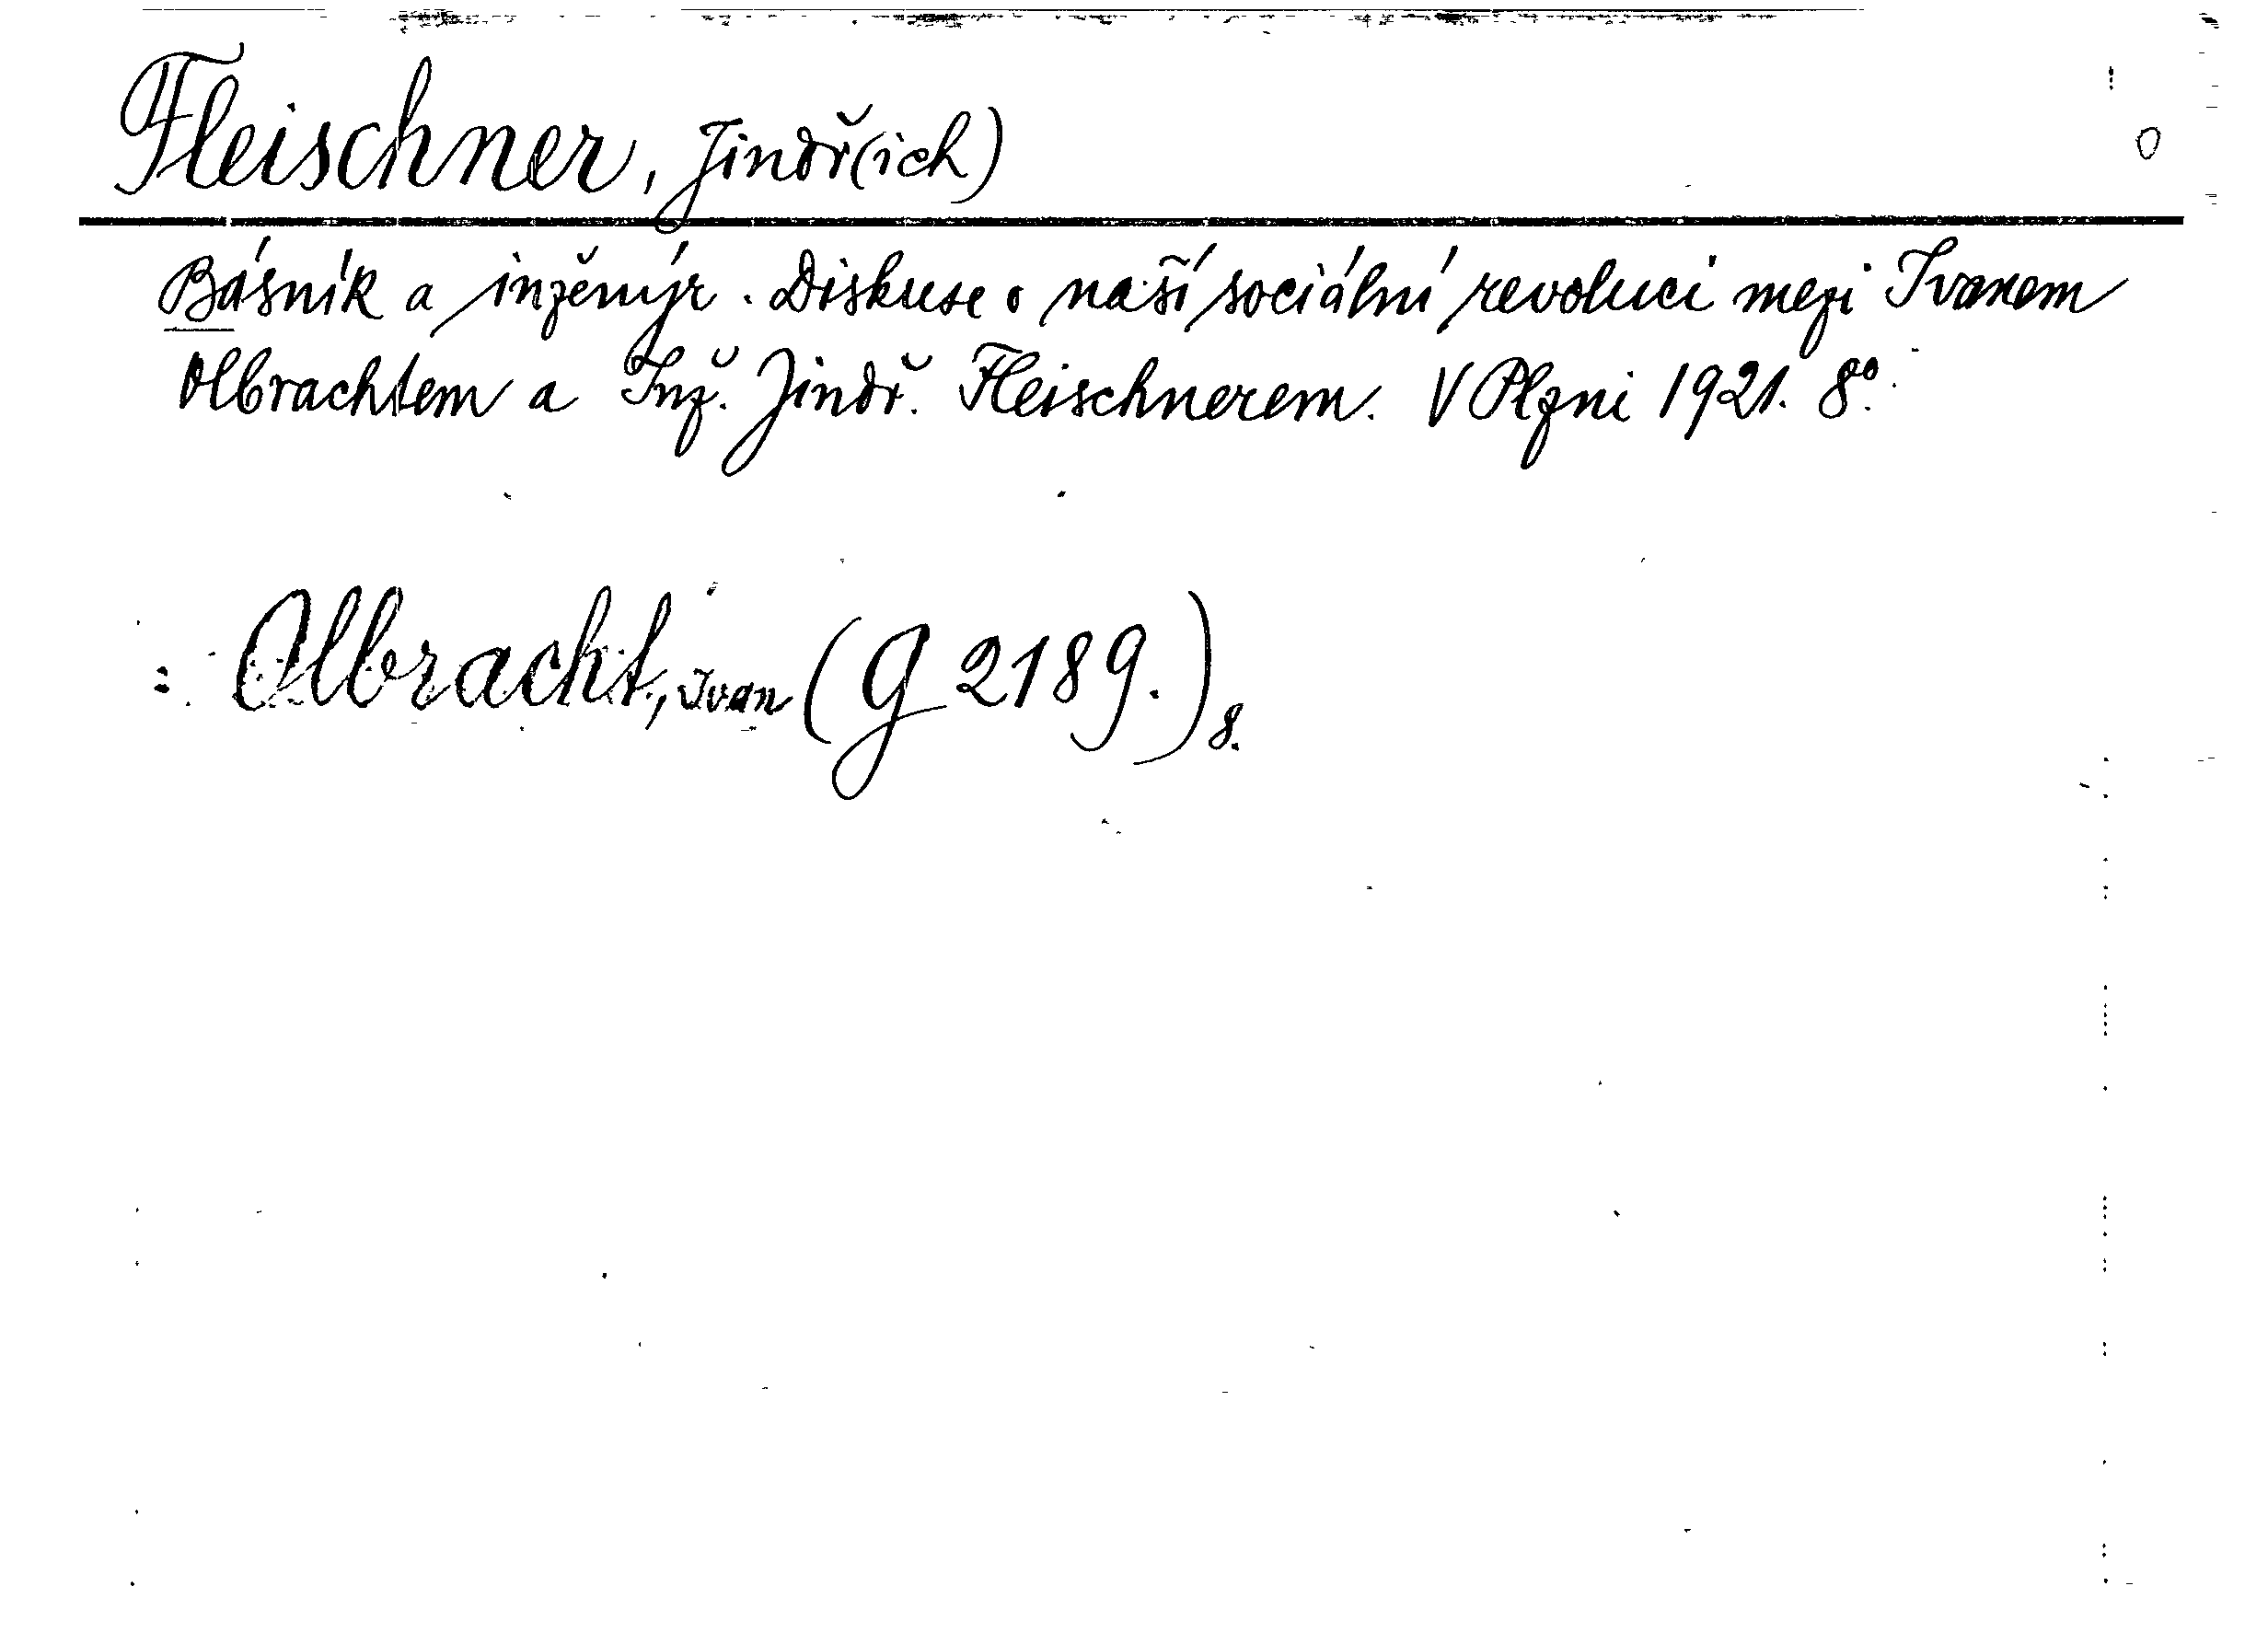 Fleischner, Jindř(ich) O
Básník a inženýr. Diskuse o naší sociální revoluci mezi Ivanem
Olbrachtem a Inž. Jindř. Fleischnerem. V Plzni 1921. 8°.
: Olbracht, Ivan (G 2189.) 8.